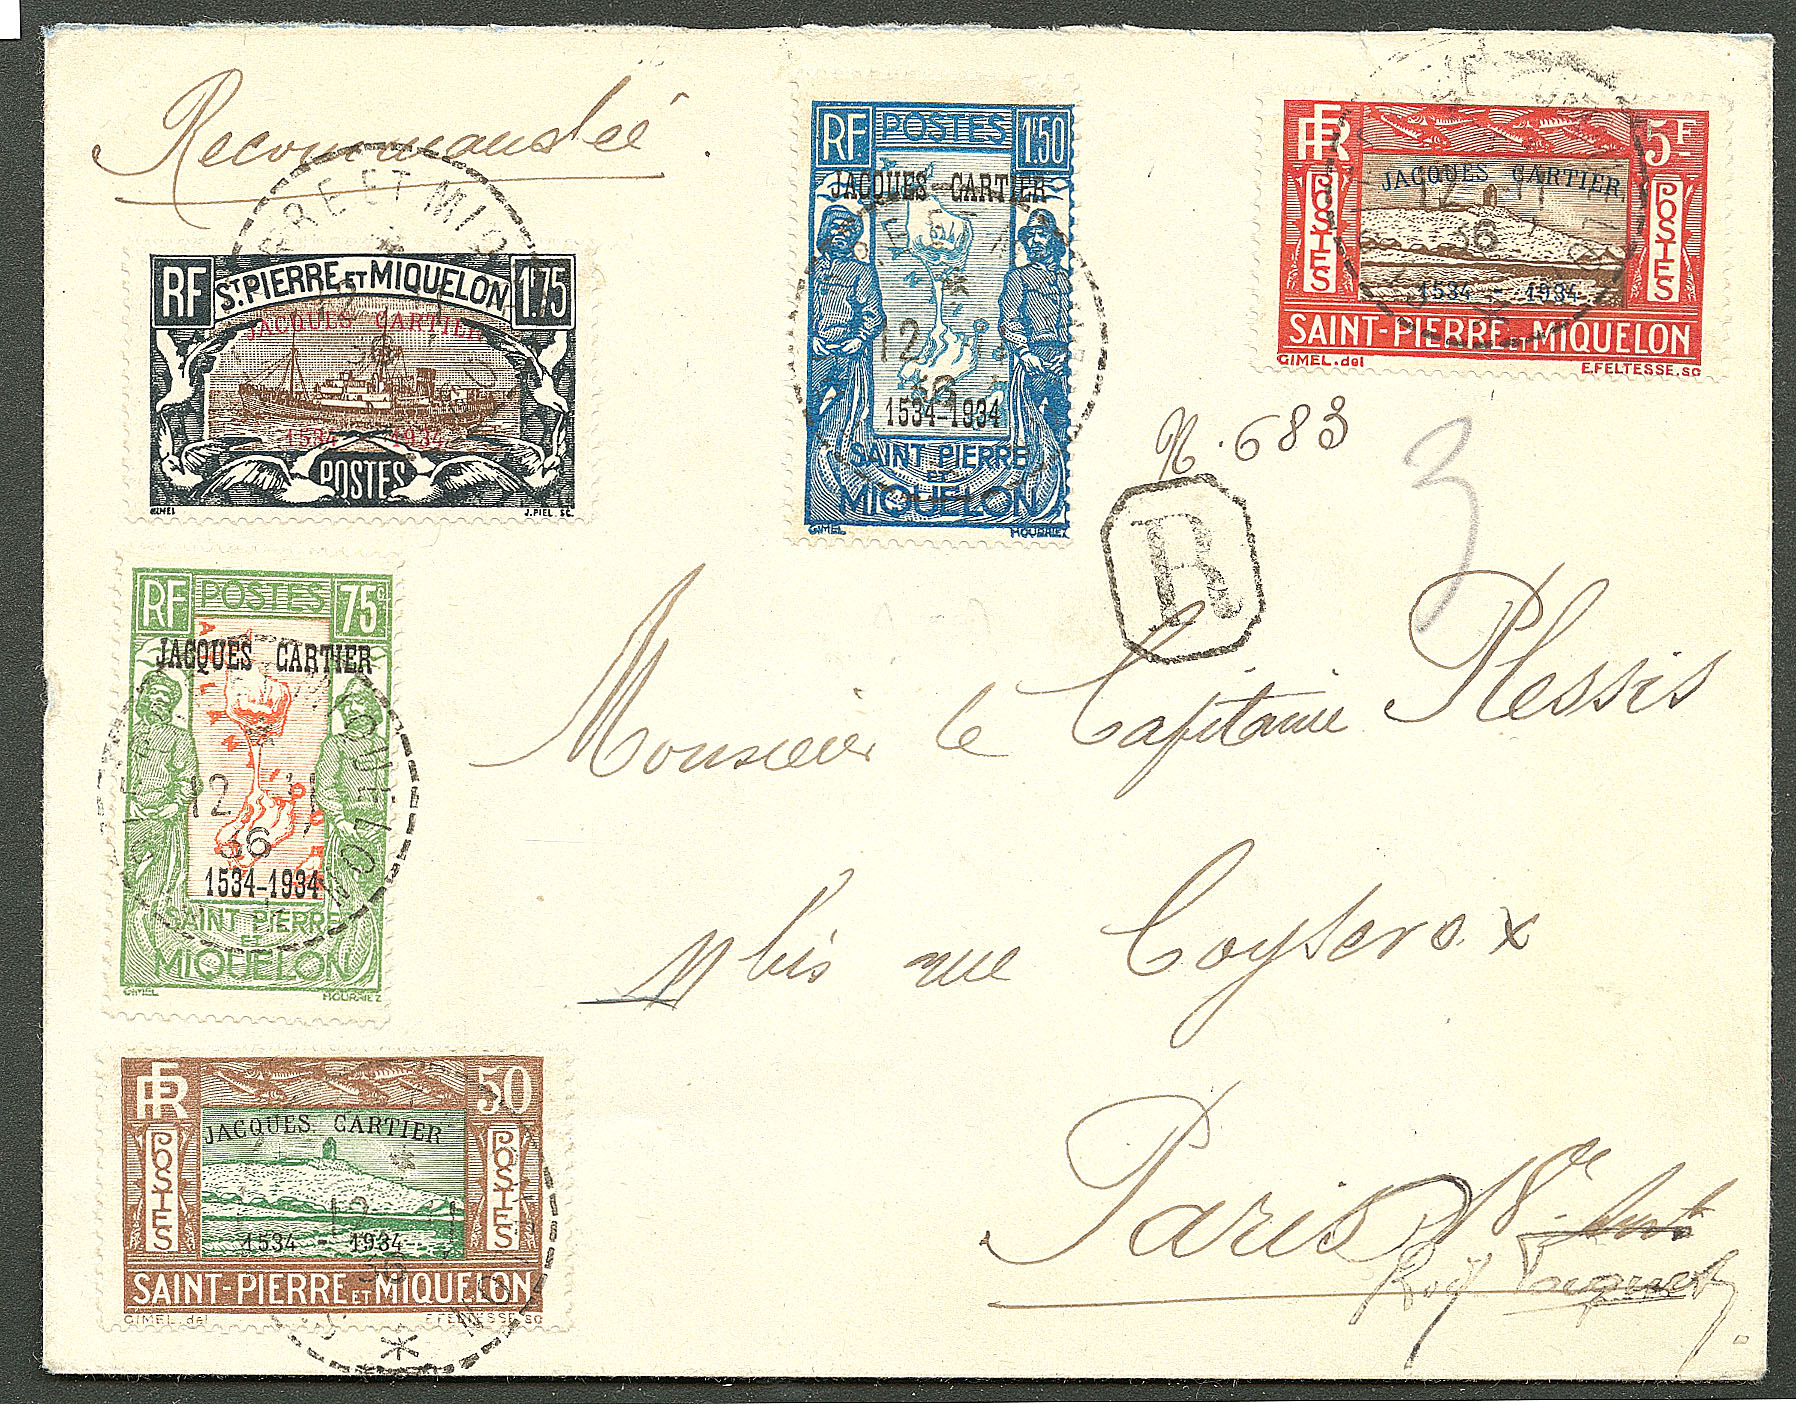 Recommandée.
RF ST PIERRE ET MIQUELON 1F75
JACQUES CARTIER
1534 - 1934
POSTES
GIMEL J. PIEL. SC.
RF POSTES 1F50
JACQUES CARTIER
1534-1934
SAINT PIERRE
ET
MIQUELON
GIMEL HOURRIEZ
RF 5F
JACQUES CARTIER
POSTES POSTES
1534 - 1934
SAINT-PIERRE ET MIQUELON
GIMEL.del E.FELTESSE.sc
12 11
36
N. 683
3
R
RF POSTES 75c
JACQUES CARTIER
1534-1934
SAINT PIERRE
ET
MIQUELON
GIMEL HOURRIEZ
12 11
36
Monsieur le Capitaine Plessis
bis rue Coysevox
Paris 18e
RF 50
JACQUES CARTIER
POSTES POSTES
1534 - 1934
SAINT-PIERRE ET MIQUELON
GIMEL.del E.FELTESSE.sc
12 11
36